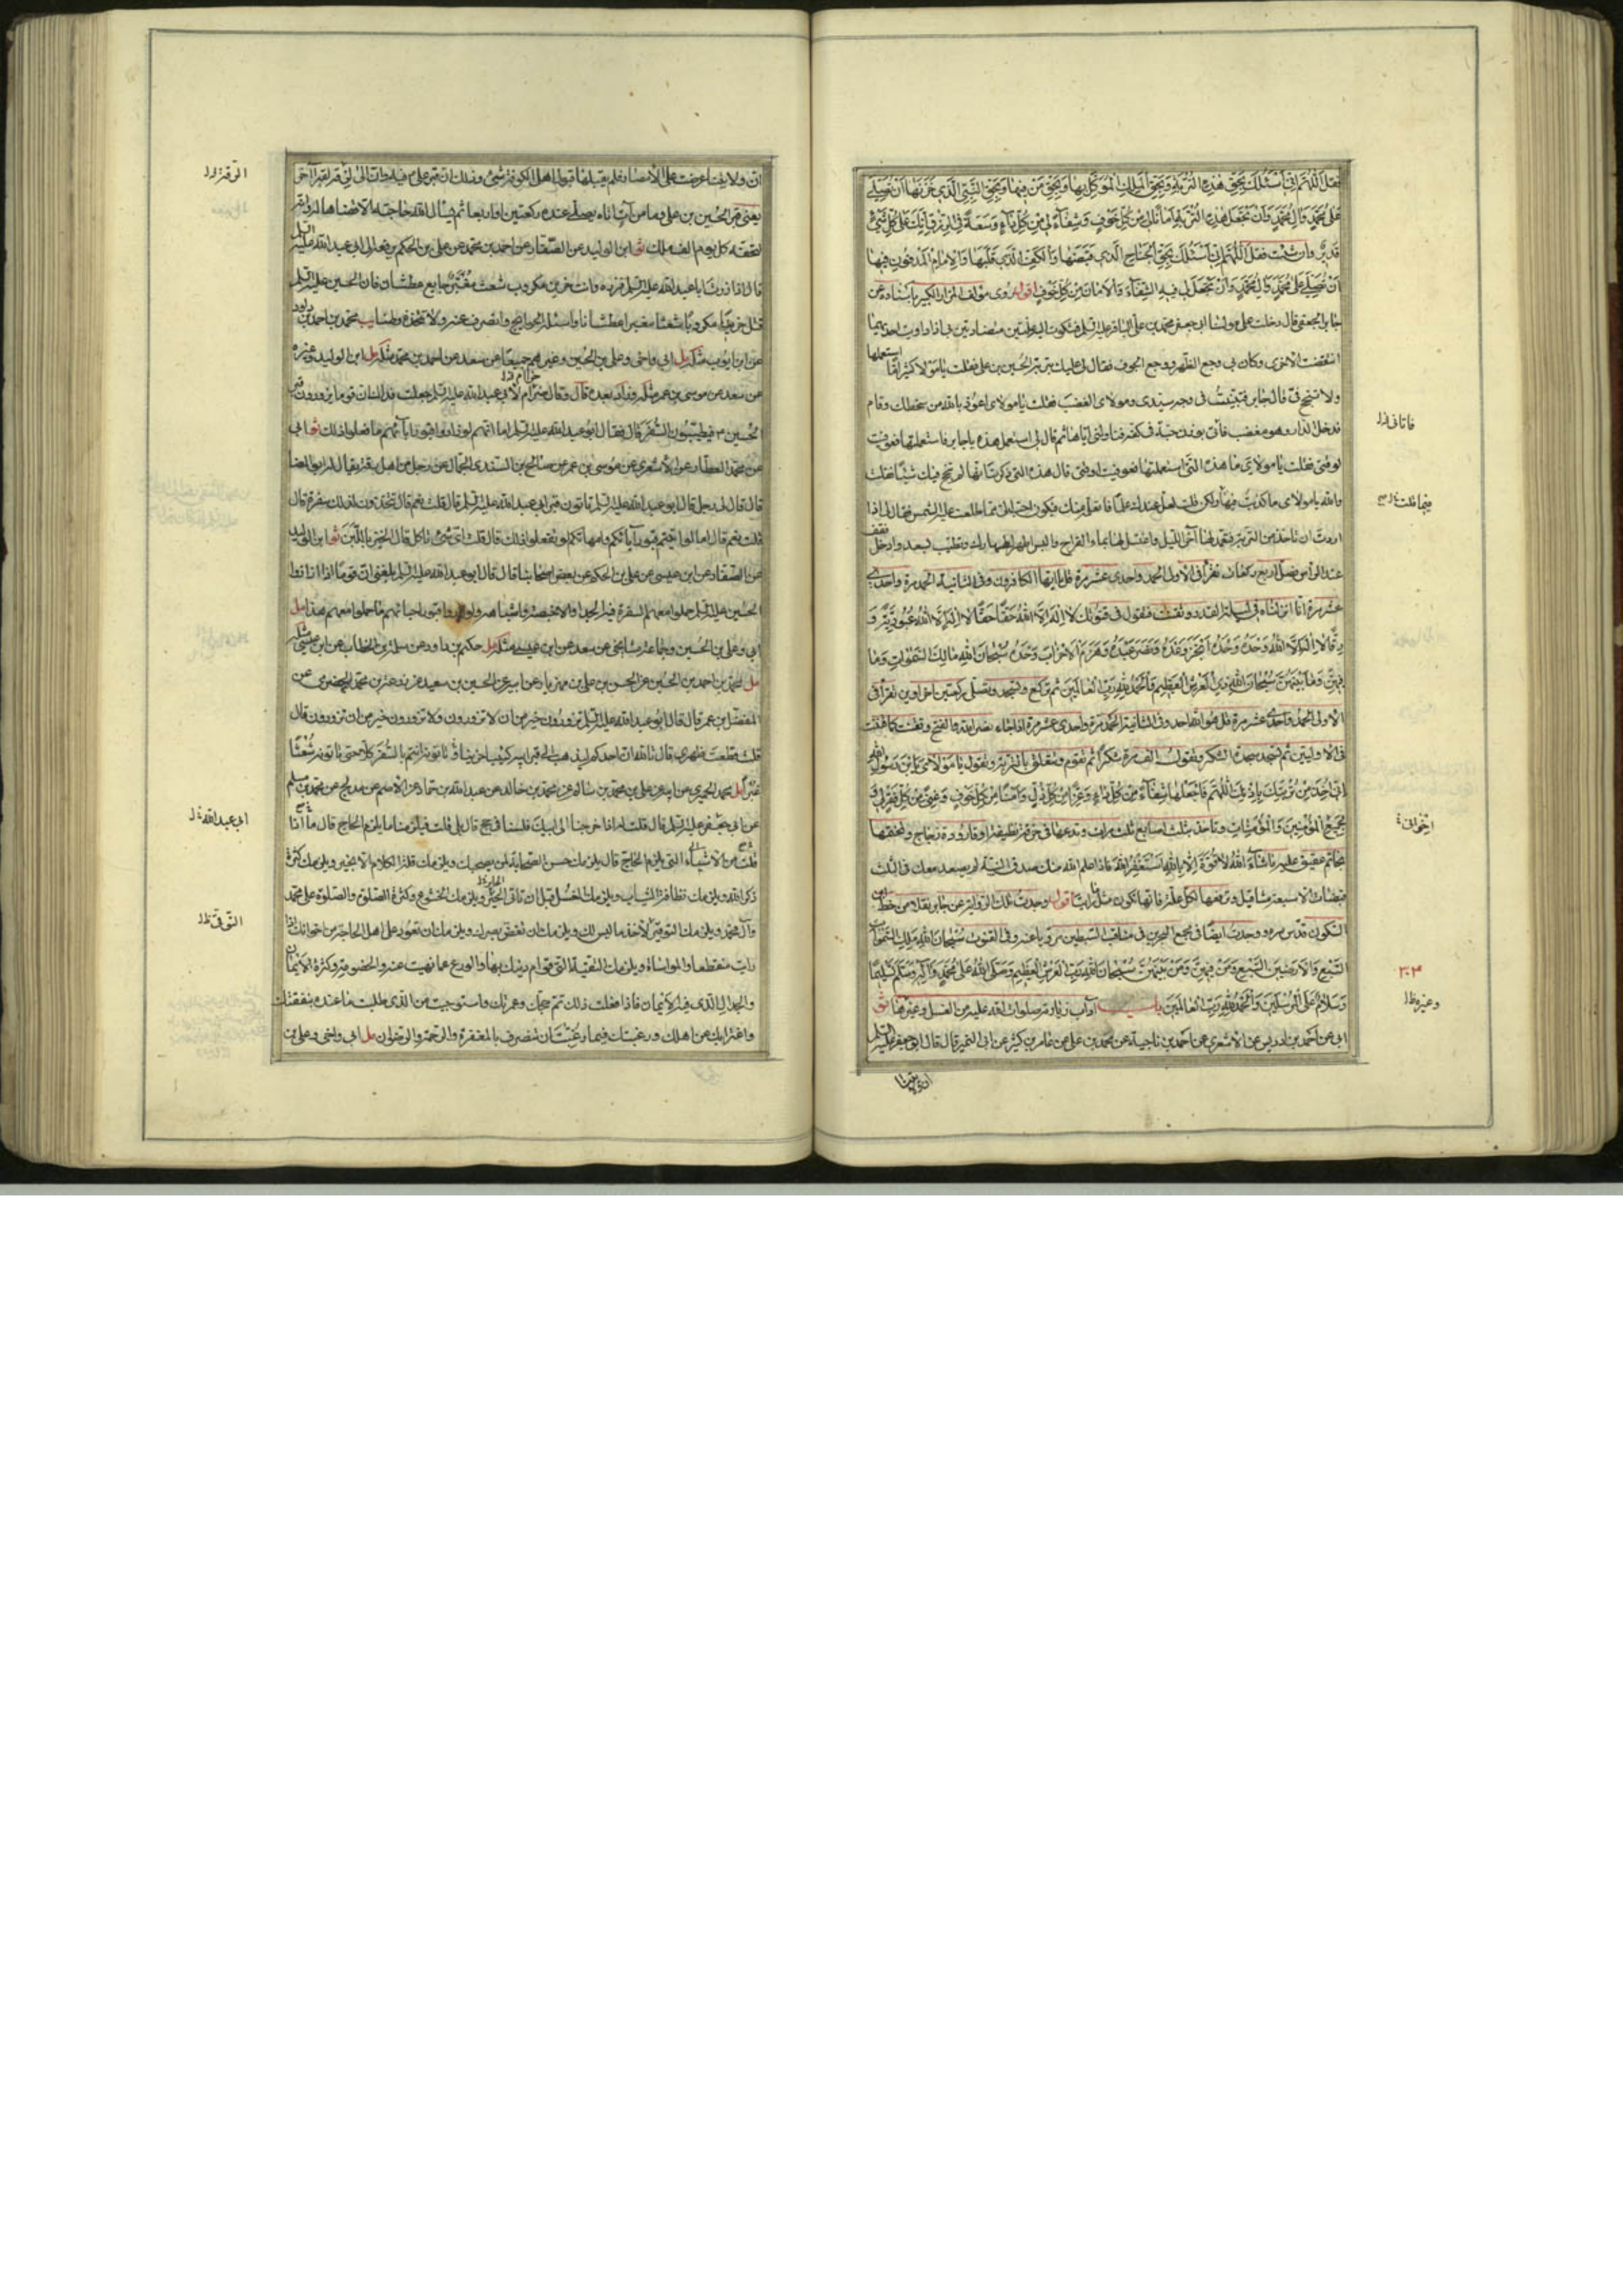 فقل اللهم اني اسئلك بحق هذه التربة وبحق الملك الموكل بها وبحق من فيها وبحق النبي الذي خزنها ان تصلي
على محمد وال محمد وان تجعل هذه التربة امانا لي من كل خوف وشفاء لي من كل داء وسعة في الرزق انك على كل شيء
قدير وان شئت فقل اللهم اني اسئلك بحق الجناح الذي قبضها والكف الذي قلبها والامام المدفون فيها
ان تصلي على محمد وال محمد وان تجعل لي فيه الشفاء والامان من كل خوف اقول روى مؤلف المزار الكبير باسناده عن
جابر الجعفي قال دخلت على مولانا ابي جعفر محمد بن علي الباقر عليه السلم فشكوت اليه علتين متضادتين بي اذا داويت احديهما
انتقضت الاخرى وكان بي وجع الظهر ووجع الجوف فقال لي عليك بتربة الحسين بن علي فقلت يا مولاي كثيرا ما استعملها
ولا تنجح في قال جابر فتبينت في وجه سيدي ومولاي الغضب فقلت يا مولاي اعوذ بالله من سخطك وقام
فدخل الدار وهو مغضب فاتى بوزن حبة في كفه فناولني اياها ثم قال لي استعمل هذه يا جابر فاستعملتها فعوفيت
لوقتي فقلت يا مولاي ما هذه التي استعملتها فعوفيت لوقتي قال هذه التي ذكرت انها لم تنجح فيك شيئا فقلت
والله يا مولاي ما كذبت فيها ولكن قلت لعل عندك علما فاتعلمه منك فيكون احب الي مما طلعت عليه الشمس فقال لي اذا
اردت ان تاخذ من التربة فتعمد لها اخر الليل واغتسل لها بماء القراح والبس اطهر اطهارك وتطيب بسعد وادخل فقف
عند الراس فصل اربع ركعات تقرا في الاولى الحمد واحدى عشر مرة قل يا ايها الكافرون وفي الثانية الحمد مرة واحدى
عشر مرة انا انزلناه في ليلة القدر وتقنت فتقول في قنوتك لا اله الا الله حقا حقا لا اله الا الله عبودية و
رقا لا اله الا الله وحده وحده انجز وعده ونصر عبده وهزم الاحزاب وحده سبحان الله مالك السموات وما
فيهن وما بينهن سبحان الله ذي العرش العظيم والحمد لله رب العالمين ثم تركع وتسجد وتصلي ركعتين اخراوين تقرا في
الاولى الحمد واحدى عشر مرة قل هو الله احد وفي الثانية الحمد مرة واحدى عشر مرة اذا جاء نصر الله والفتح وتقنت كما قنت
في الاوليين ثم تسجد سجدة الشكر وتقول الف مرة شكرا ثم تقوم وتتعلق بالتربة وتقول يا مولاي يا بن رسول الله
اني اخذ من تربتك باذنك اللهم فاجعلها شفاء من كل داء وعزا من كل ذل وامنا من كل خوف وغنى من كل فقر لي و
لجميع المؤمنين والمؤمنات وتاخذ بثلث اصابع ثلث مرات وتدعها في خرقة نظيفة او قارورة زجاج وتختمها
بخاتم عقيق عليه ما شاء الله لا قوة الا بالله استغفر الله فاذا علم الله منك صدق النية لم يصعد معك في الثلث
قبضات الا سبعة مثاقيل وترفعها لكل علة فانها تكون مثل ما رايت اقول وجدت تلك الرواية عن جابر نقلا من خط ابن
السكون قدس سره ووجدت ايضا في مجمع البحرين في مناقب السبطين مرويا عنه وفي القنوت سبحان الله ملك السموات
السبع والارضين السبع ومن فيهن ومن بينهن سبحان الله رب العرش العظيم وصلى الله على محمد واله وسلم تسليما
وسلام على المرسلين والحمد لله رب العالمين باب اداب زيارته صلوات الله عليه من الغسل وغيرها ثو
ابي عن احمد بن ادريس عن الاشعري عن احمد بن ناجية عن محمد بن علي عن عامر بن كثير عن ابي النمير قال قال ابو جعفر عليه السلم
ان ولايتنا
فاتاني
فيما قلت
اخواني
٣٠٣
وغيره
ان ولايتنا عرضت على الامصار فلم يقبلها قبول اهل الكوفة شيء وذلك ان قبر علي فيه وان الى لزقه لقبرا اخر
يعني قبر الحسين بن علي وما من ات اتاه يصلي عنده ركعتين او اربعا ثم يسال الله حاجته الا قضاها له وانه
لتحفه كل يوم الف ملك ثو ابن الوليد عن الصفار عن احمد بن محمد عن علي بن الحكم يرفعه الى ابي عبد الله عليه السلم
قال اذا زرت ابا عبد الله عليه السلم فزره وانت حزين مكروب شعث مغبر جايع عطشان فان الحسين عليه السلم
قتل حزينا مكروبا شعثا مغبرا عطشانا واسئله الحوايج وانصرف عنه ولا تتخذه وطنا يب محمد بن احمد بن داود
عن سعد عن موسى بن عمر مثله وزاد بعده قال وقال حزام لابي عبد الله عليه السلم جعلت فداك ان قوما يزورون قبر
الحسين فيطيبون السفر قال فقال ابو عبد الله عليه السلم اما انهم لو زاروا قبور ابائهم ما فعلوا ذلك ثو ابي
عن محمد العطار عن الاشعري عن موسى بن عمر عن صالح بن السندي الجمال عن رجل من اهل الرقة يقال له ابو المضا
قال قال لي رجل قال ابو عبد الله عليه السلم تاتون قبر ابي عبد الله عليه السلم قال قلت نعم قال تتخذون لذلك سفرة قال
قلت نعم قال اما لو اتيتم قبور ابائكم وامهاتكم لم تفعلوا ذلك قال قلت اي شيء ناكل قال الخبز باللبن ثو ابن الوليد
عن الصفار عن ابن عيسى عن علي بن الحكم عن بعض اصحابنا قال قال ابو عبد الله عليه السلم بلغني ان قوما اذا زاروا
الحسين عليه السلم حملوا معهم السفرة فيها الجداء والاخبصة واشباهه ولو زاروا قبور احبائهم ما حملوا معهم هذا مل
مل محمد بن احمد بن الحسين عن الحسن بن علي بن مهزيار عن ابيه عن الحسين بن سعيد عن زرعة بن محمد الحضرمي عن
المفضل بن عمر قال قال ابو عبد الله عليه السلم تزورون خير من ان لا تزورون ولا تزورون خير من ان تزورون قال
قلت قطعت ظهري قال تالله ان احدكم ليذهب الى قبر ابيه كئيبا حزينا وتاتونه انتم بالسفر كلا حتى تاتونه شعثا
غبرا مل محمد الحميري عن ابيه عن علي بن محمد بن سالم عن محمد بن خالد عن عبد الله بن حماد عن الاصم عن مدلج عن محمد بن مسلم
عن ابي جعفر عليه السلم قال قلت له اذا خرجنا الى ابيك فلسنا في حج قال بلى قلت فيلزمنا ما يلزم الحاج قال ماذا
قلت من الاشياء التي يلزم الحاج قال يلزمك حسن الصحابة لمن يصحبك ويلزمك قلة الكلام الا بخير ويلزمك كثرة
ذكر الله ويلزمك نظافة الثياب ويلزمك الغسل قبل ان تاتي الحير ويلزمك الخشوع وكثرة الصلوة والصلوة على محمد
وال محمد ويلزمك التوقير لاخذ ما ليس لك ويلزمك ان تغض بصرك ويلزمك ان تعود على اهل الحاجة من اخوانك اذا
رايت منقطعا والمواساة ويلزمك التقية التي قوام دينك بها والورع عما نهيت عنه والخصومة وكثرة الايمان
والجدال الذي فيه الايمان فاذا فعلت ذلك تم حجك وعمرتك واستوجبت من الذي طلبت ما عنده بنفقتك
واغترابك عن اهلك ورغبتك فيما رغبت ان تنصرف بالمغفرة والرحمة والرضوان مل ابي واخي وعلي بن
ابي عبد الله
التوقي